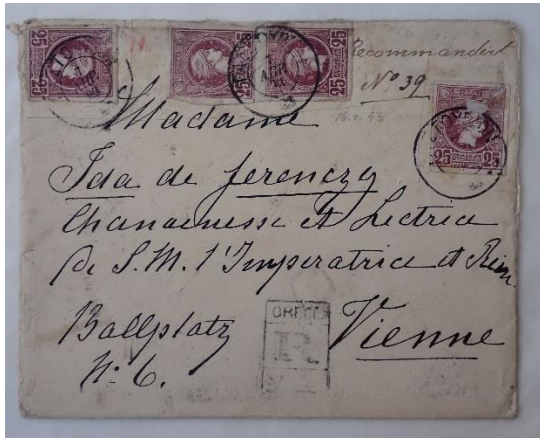 25 25
25 25
25 25
Recommandirt
Nº 39
16. 93
25 25
Madame
Ida de Ferenczy
Chanoinesse et Lectrice
de S.M. l'Imperatrice et Reine
Ballplatz
Nº 6.
Vienne
R